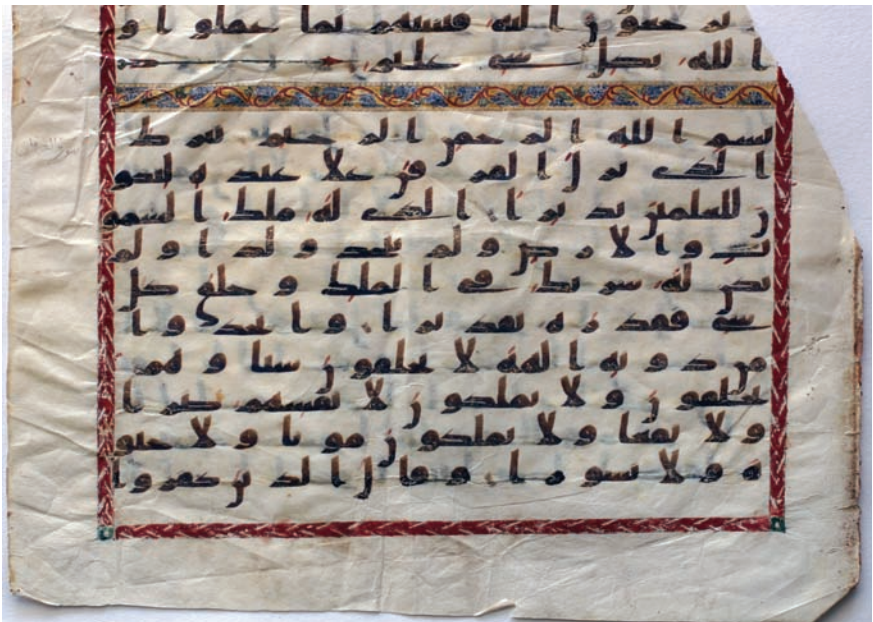 يرجعون اليه فينبئهم بما عملوا و
الله بكل شي عليم
بسم الله الرحمن الرحيم تبرك
الذي نزل الفرقن على عبده ليكو
ن للعلمين نذيرا الذي له ملك السمو
ت والارض ولم يتخذ ولدا ولم
يكن له شريك في الملك وخلق كل
شي فقدره تقديرا واتخذوا
من دونه الهة لا يخلقون شيا وهم
يخلقون ولا يملكون لانفسهم ضرا
ولا نفعا ولا يملكون موتا ولا حيو
ة ولا نشورا وقال الذين كفروا